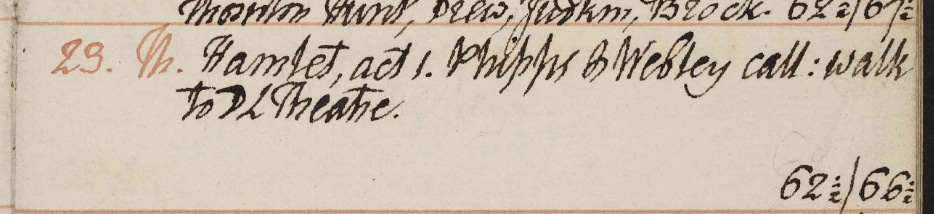 Thornton Hunt, Drew, Judkin, Brock. 62½/67½
23. Th. Hamlet, act 1. Phipps & Webley call: walk
to DL Theatre.
62½/66½